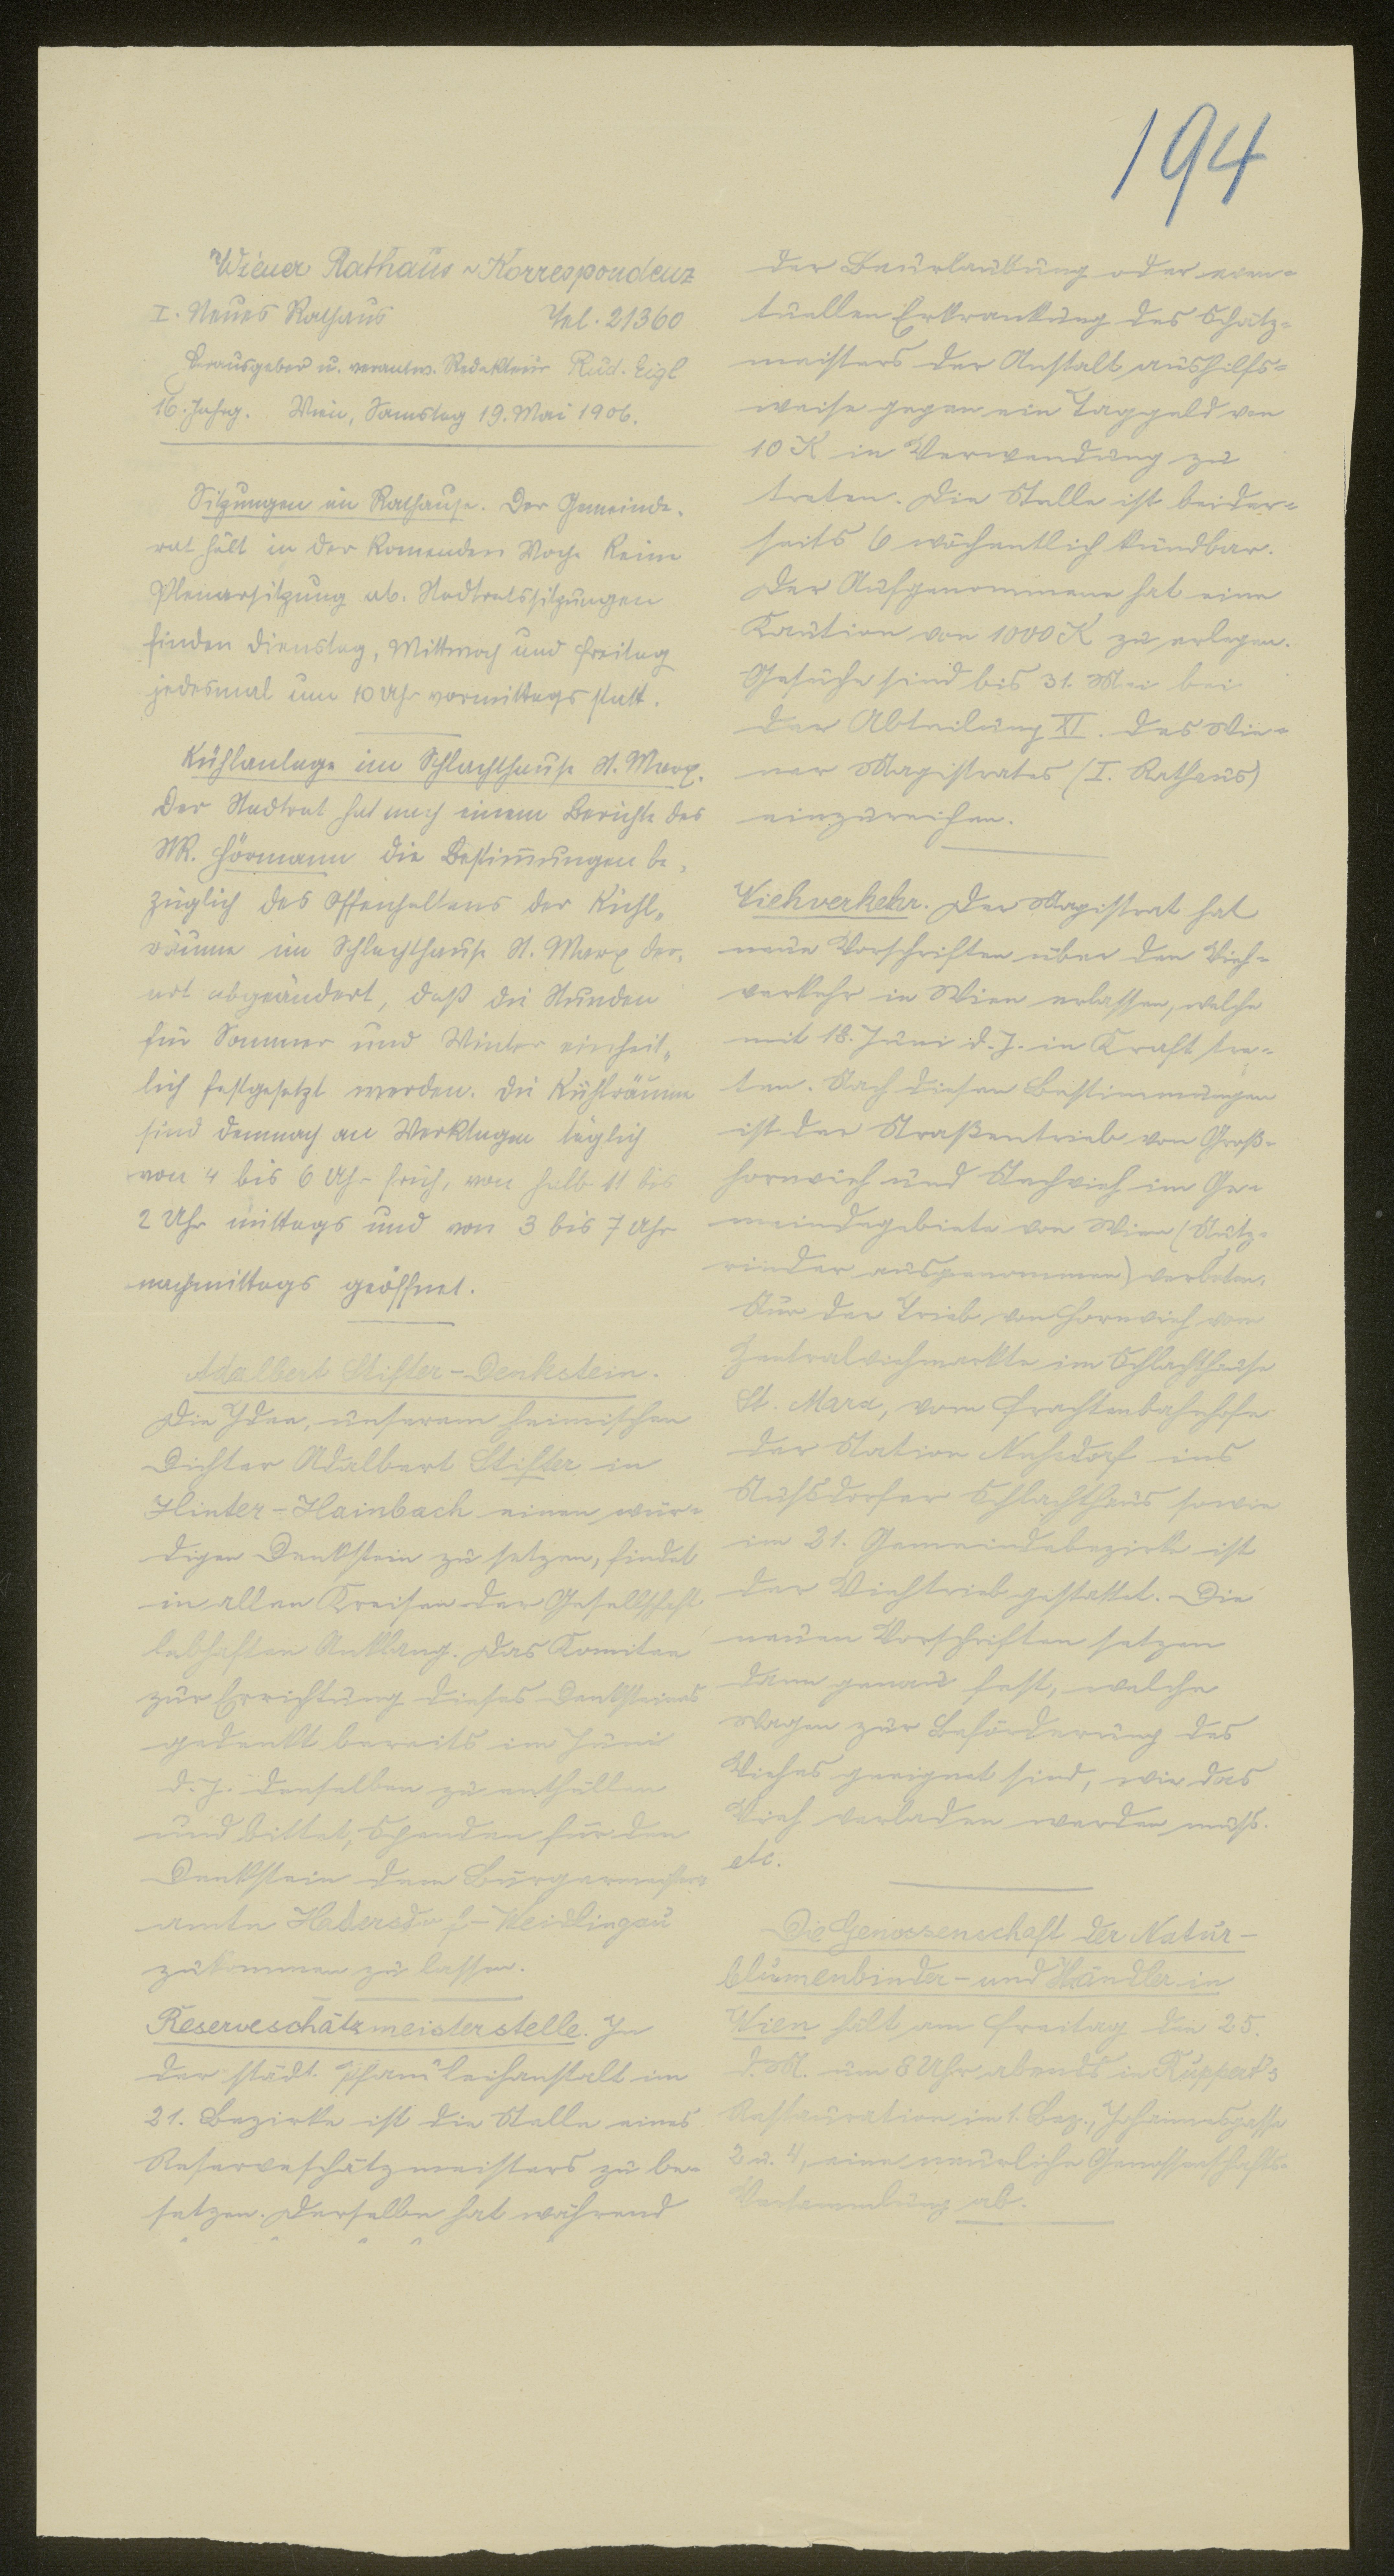 194
Wiener Rathaus-Korrespondenz
I. Neues Rathaus Tel. 21360
Herausgeber u. verantw. Redakteur Rud. Eigl
16. Jahrg. Wien, Samstag 19. Mai 1906.
Sitzungen im Rathause. Der Gemeinde-
rat hält in der komenden Woche keine
Plenarsitzung ab. Stadtratssitzungen
finden Dienstag, Mittwoch und Freitag
jedesmal um 10 Uhr vormittags statt.
Kühlanlage im Schlachthause St. Marx.
Der Stadtrat hat nach einem Berichte des
StR. Hörmann die Bestim̅ungen be-
züglich des Offenhaltens der Kühl-
räume im Schlachthause St. Marx der-
art abgeändert, daß die Stunden
für Sommer und Winter einheit-
lich festgesetzt werden. Die Kühlräume
sind demnach an Werktagen täglich
von 4 bis 6 Uhr früh, von halb 11 bis
2 Uhr mittags und von 3 bis 7 Uhr
nachmittags geöffnet.
Adalbert Stifter-Denkstein.
Die Idee, unserem heimischen
Dichter Adalbert Stifter in
Hinter-Hainbach einen wür-
digen Denkstein zu setzen, findet
in allen Kreisen der Gesellschaft
lebhaften Anklang. Das Komitee
zur Errichtung dieses Denksteines
gedenkt bereits im Juni
d. J. denselben zu enthüllen
und bittet, Spenden für den
Denkstein dem Bürgermeister-
amte Hadersdorf-Weidlingau
zukommen zu lassen.
Reserveschätzmeisterstelle. In
der städt. Pfandleihanstalt im
21. Bezirke ist die Stelle eines
Reserveschätzmeisters zu be-
setzen. Derselbe hat während
der Beurlaubung oder even-
tuellen Erkrankung des Schätz-
meisters der Anstalt aushilfs-
weise gegen ein Taggeld von
10 K in Verwendung zu
treten. Die Stelle ist beider-
seits 6 wöchentlich kündbar.
Der Aufgenommene hat eine
Kaution von 1000 K zu erlegen.
Gesuche sind bis 31. Mai bei
der Abteilung XI. des Wie-
ner Magistrates (I. Rathaus)
einzureichen.
Viehverkehr. Der Magistrat hat
neue Vorschriften über den Vieh-
verkehr in Wien erlassen, welche
mit 18. Juni d. J. in Kraft tre-
ten. Nach diesen Bestimmungen
ist der Straßentrieb von Groß-
hornvieh und Stechvieh im Ge-
meindegebiete von Wien (Nutz-
rinder ausgenommen) verboten.
Nur der Trieb von Hornvieh vom
Zentralviehmarkte im Schlachthause
St. Marx, vom Frachtenbahnhofe
der Station Nußdorf ins
Nußdorfer Schlachthaus sowie
im 21. Gemeindebezirke ist
der Viehtrieb gestattet. Die
neuen Vorschriften setzen
dann genau fest, welche
Wagen zur Beförderung des
Viehes geeignet sind, wie das
Vieh verladen werden muß.
etc.
Die Genossenschaft der Natur-
blumenbinder- und Händler in
Wien hält am Freitag den 25.
d. M. um 8 Uhr abends in Ruppert's
Restauration im 1. Bez., Johannesgasse
2 u. 4, eine Genossenschafts-
Versammlung ab.